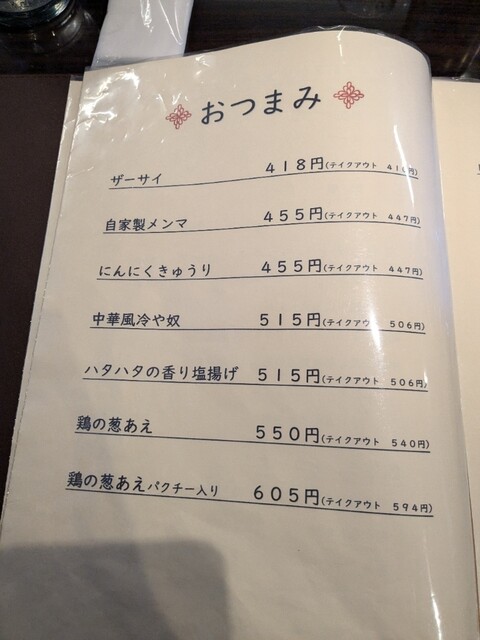 おつまみ
ザーサイ 418円(テイクアウト 410円)
自家製メンマ 455円(テイクアウト 447円)
にんにくきゅうり 455円(テイクアウト 447円)
中華風冷や奴 515円(テイクアウト 506円)
ハタハタの香り塩揚げ 515円(テイクアウト 506円)
鶏の葱あえ 550円(テイクアウト 540円)
鶏の葱あえパクチー入り 605円(テイクアウト 594円)